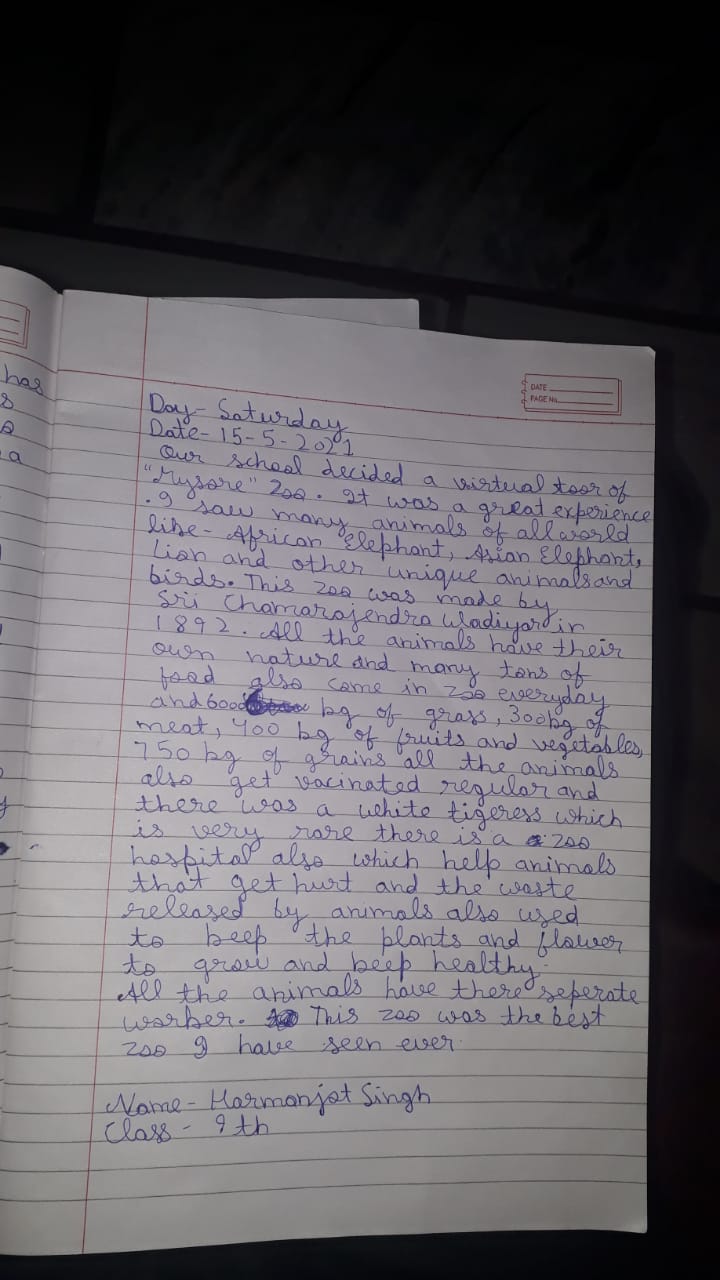 has
s
a
DATE
PAGE No.
Day- Saturday
Date- 15-5-2021
Our school decided a virtual toor of
"Mysore" Zoo. It was a great experience
. I saw many animals of all world
like- African Elephant, Asian Elephant,
Lion and other unique animals and
birds. This zoo was made by
Sri Chamarajendra Wadiyar in
1892. All the animals have their
own nature and many tons of
food also come in zoo everyday
and 600 kg of grass, 300kg of
meat, 400 kg of fruits and vegetables,
750 kg of grains all the animals
also get vacinated regular and
there was a white tigeress which
is very rare there is a zoo
hospital also which help animals
that get hurt and the waste
released by animals also used
to keep the plants and flower
to grow and keep healthy.
All the animals have there seperate
worker. This zoo was the best
zoo I have seen ever.
Name- Harmanjot Singh
Class- 9th